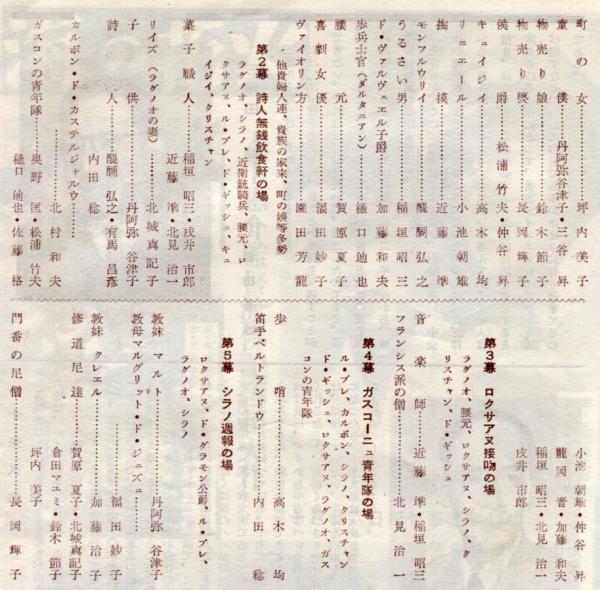 町の女………坪内美子
童僕………丹阿弥谷津子・三谷昇
物売り娘………鈴木節子
物売り婆………長岡輝子
侯爵………松浦竹夫・仲谷昇
キュイジイ………高木均
リニエール………小池朝雄
掏摸………近藤準
モンフルウリイ………醍醐弘之
うるさい男………稲垣昭三
ド・ヴァルヴェエル子爵………加藤和夫
歩兵士官(ダルタニアン)………樋口迪也
腰元………賀原夏子
喜劇女優………福田妙子
ヴァイオリン方………園田芳龍
他貴婦人連、貴族の家来、町の娘等多勢
第2幕 詩人無銭飲食軒の場
ラグノオ、シラノ、近衛銃騎兵、腰元、ロ
クサアヌ、ル・ブレ、ド・ギッシュ、キュ
イジイ、クリスチャン
菓子職人………稲垣昭三・戌井市郎
近藤準・北見治一
リイズ(ラグノオの妻)………北城真記子
子供………丹阿弥谷津子
詩人………醍醐弘之・有馬昌彦
内田稔
カルボン・ド・カステルジャルウ………北村和夫
ガスコンの青年隊………奥野匡・松浦竹夫
樋口迪也・佐藤格
小池朝雄・仲谷昇
龍岡晋・加藤和夫
稲垣昭三・北見治一
戌井市郎
第3幕 ロクサアヌ接吻の場
ラグノオ、腰元、ロクサアヌ、シラノ、ク
リスチャン、ド・ギッシュ
音楽師………近藤準・稲垣昭三
フランシス派の僧………北見治一
第4幕 ガスコーニュ青年隊の場
ル・ブレ、カルボン、シラノ、クリスチャン
ド・ギッシュ、ロクサアヌ、ラグノオ、ガス
コンの青年隊
歩哨………高木均
笛手ベルトランドウ………内田稔
第5幕 シラノ週報の場
ロクサアヌ、ド・グラモン公爵、ル・ブレ、
ラグノオ、シラノ
教妹マルト………丹阿弥谷津子
教母マルグリット・ド・ジェズュ………福田妙子
教妹クレエル………加藤治子
修道尼達………賀原夏子・北城真記子
倉田マユミ・鈴木節子
坪内美子
門番の尼僧………長岡輝子